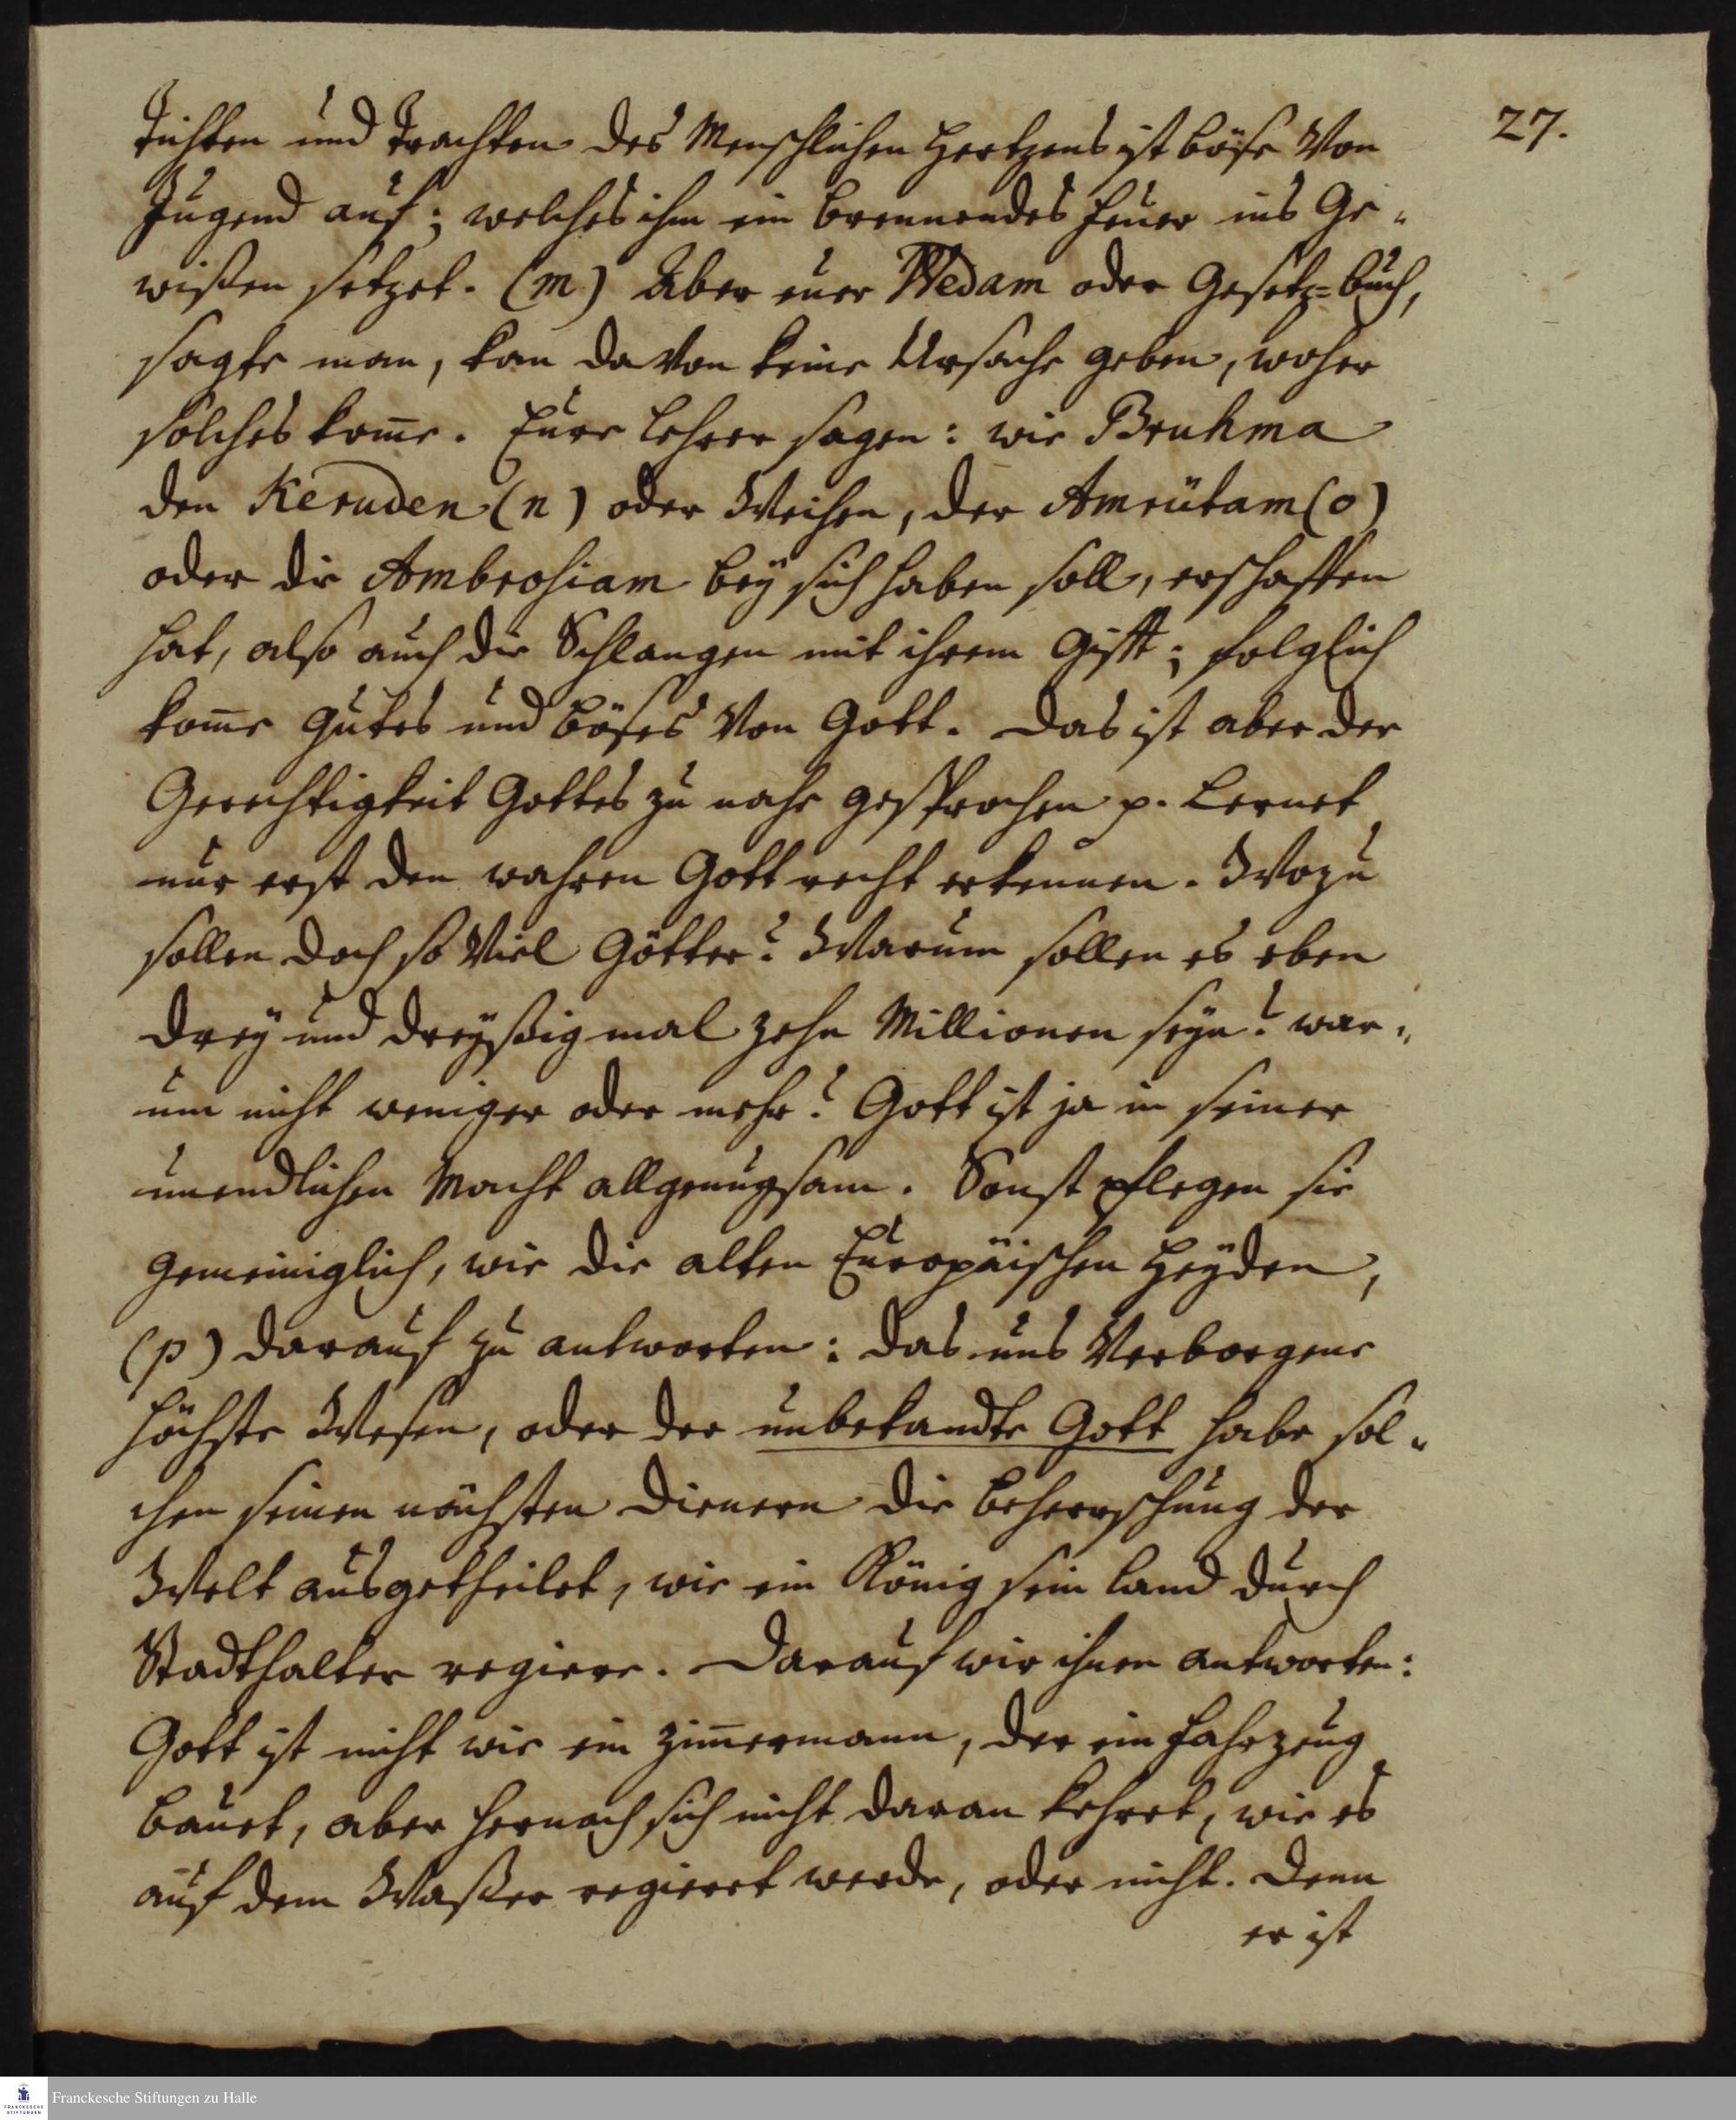 27.
Tichten und Trachten des Menschlichen Hertzens ist böse von
Jugend auf; welches ihm ein brennendes Feuer ins Ge-
wißen setzet. (m) Aber euer Wedam oder Gesetz=buch,
sagte man, kan davon keine Ursache geben, woher
solches kom̅e. Eure Lehrer sagen: wie Bruhma
den Keruden (n) oder Weihen, der Amrütam (o)
oder die Ambrosiam bey sich haben soll, erschaffen
hat, also auch die Schlangen mit ihrem Gifft; folglich
kom̅e gutes und böses von Gott. Das ist aber der
Gerechtigkeit Gottes zu nahe gesprochen p. Lernet
nur erst den wahren Gott recht erkennen. Wozu
sollen doch so viel Götter? Warum sollen es eben
drey und dreyßig mal zehn Millionen seyn? war-
um nicht weniger oder mehr? Gott ist ja in seiner
unendlichen Macht allgenugsam. Sonst pflegen sie
gemeiniglich, wie die alten Europäischen Heyden,
(p) darauf zu antworten: das uns verborgene
höchste Wesen, oder der unbekandte Gott habe sol-
chen seinen nächsten Dienern die Beherrschung der
Welt ausgetheilet, wie ein König sein Land durch
Stadthalter regiere. Darauf wir ihnen antworten:
Gott ist nicht wie ein Zim̅ermann, der ein Fahrzeug
bauet, aber hernach sich nicht daran kehret, wie es
auf dem Waßer regieret werde, oder nicht. Denn
er ist
Franckesche Stiftungen zu Halle
FRANCKESCHE
STIFTUNGEN